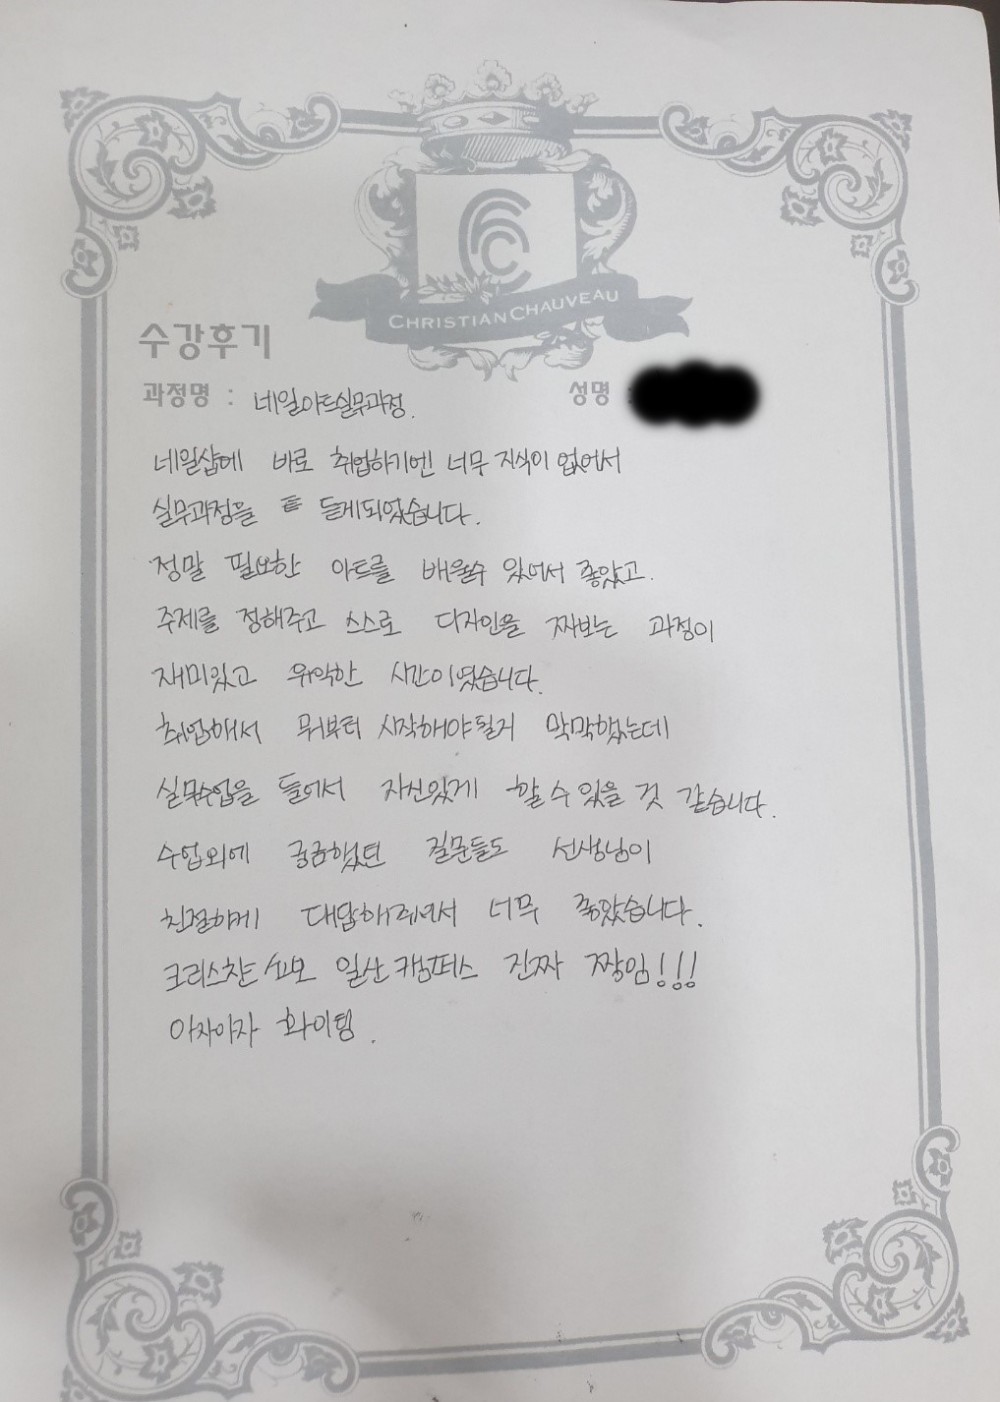 CHRISTIAN CHAUVEAU
수강후기
과정명 : 네일아트실무과정.
성명
네일샵에 바로 취업하기엔 너무 지식이 없어서
실무과정을 듣게되었습니다.
정말 필요한 아트를 배울수 있어서 좋았고.
주제를 정해주고 스스로 디자인을 짜보는 과정이
재미있고 유익한 시간이였습니다.
취업해서 뭐부터 시작해야될거 막막했는데
실무수업을 들어서 자신있게 할 수 있을 것 같습니다.
수업외에 궁금했던 질문들도 선생님이
친절하게 대답해주셔서 너무 좋았습니다.
크리스챤쇼보 일산캠퍼스 진짜 짱임!!!
아자아자 화이팅.